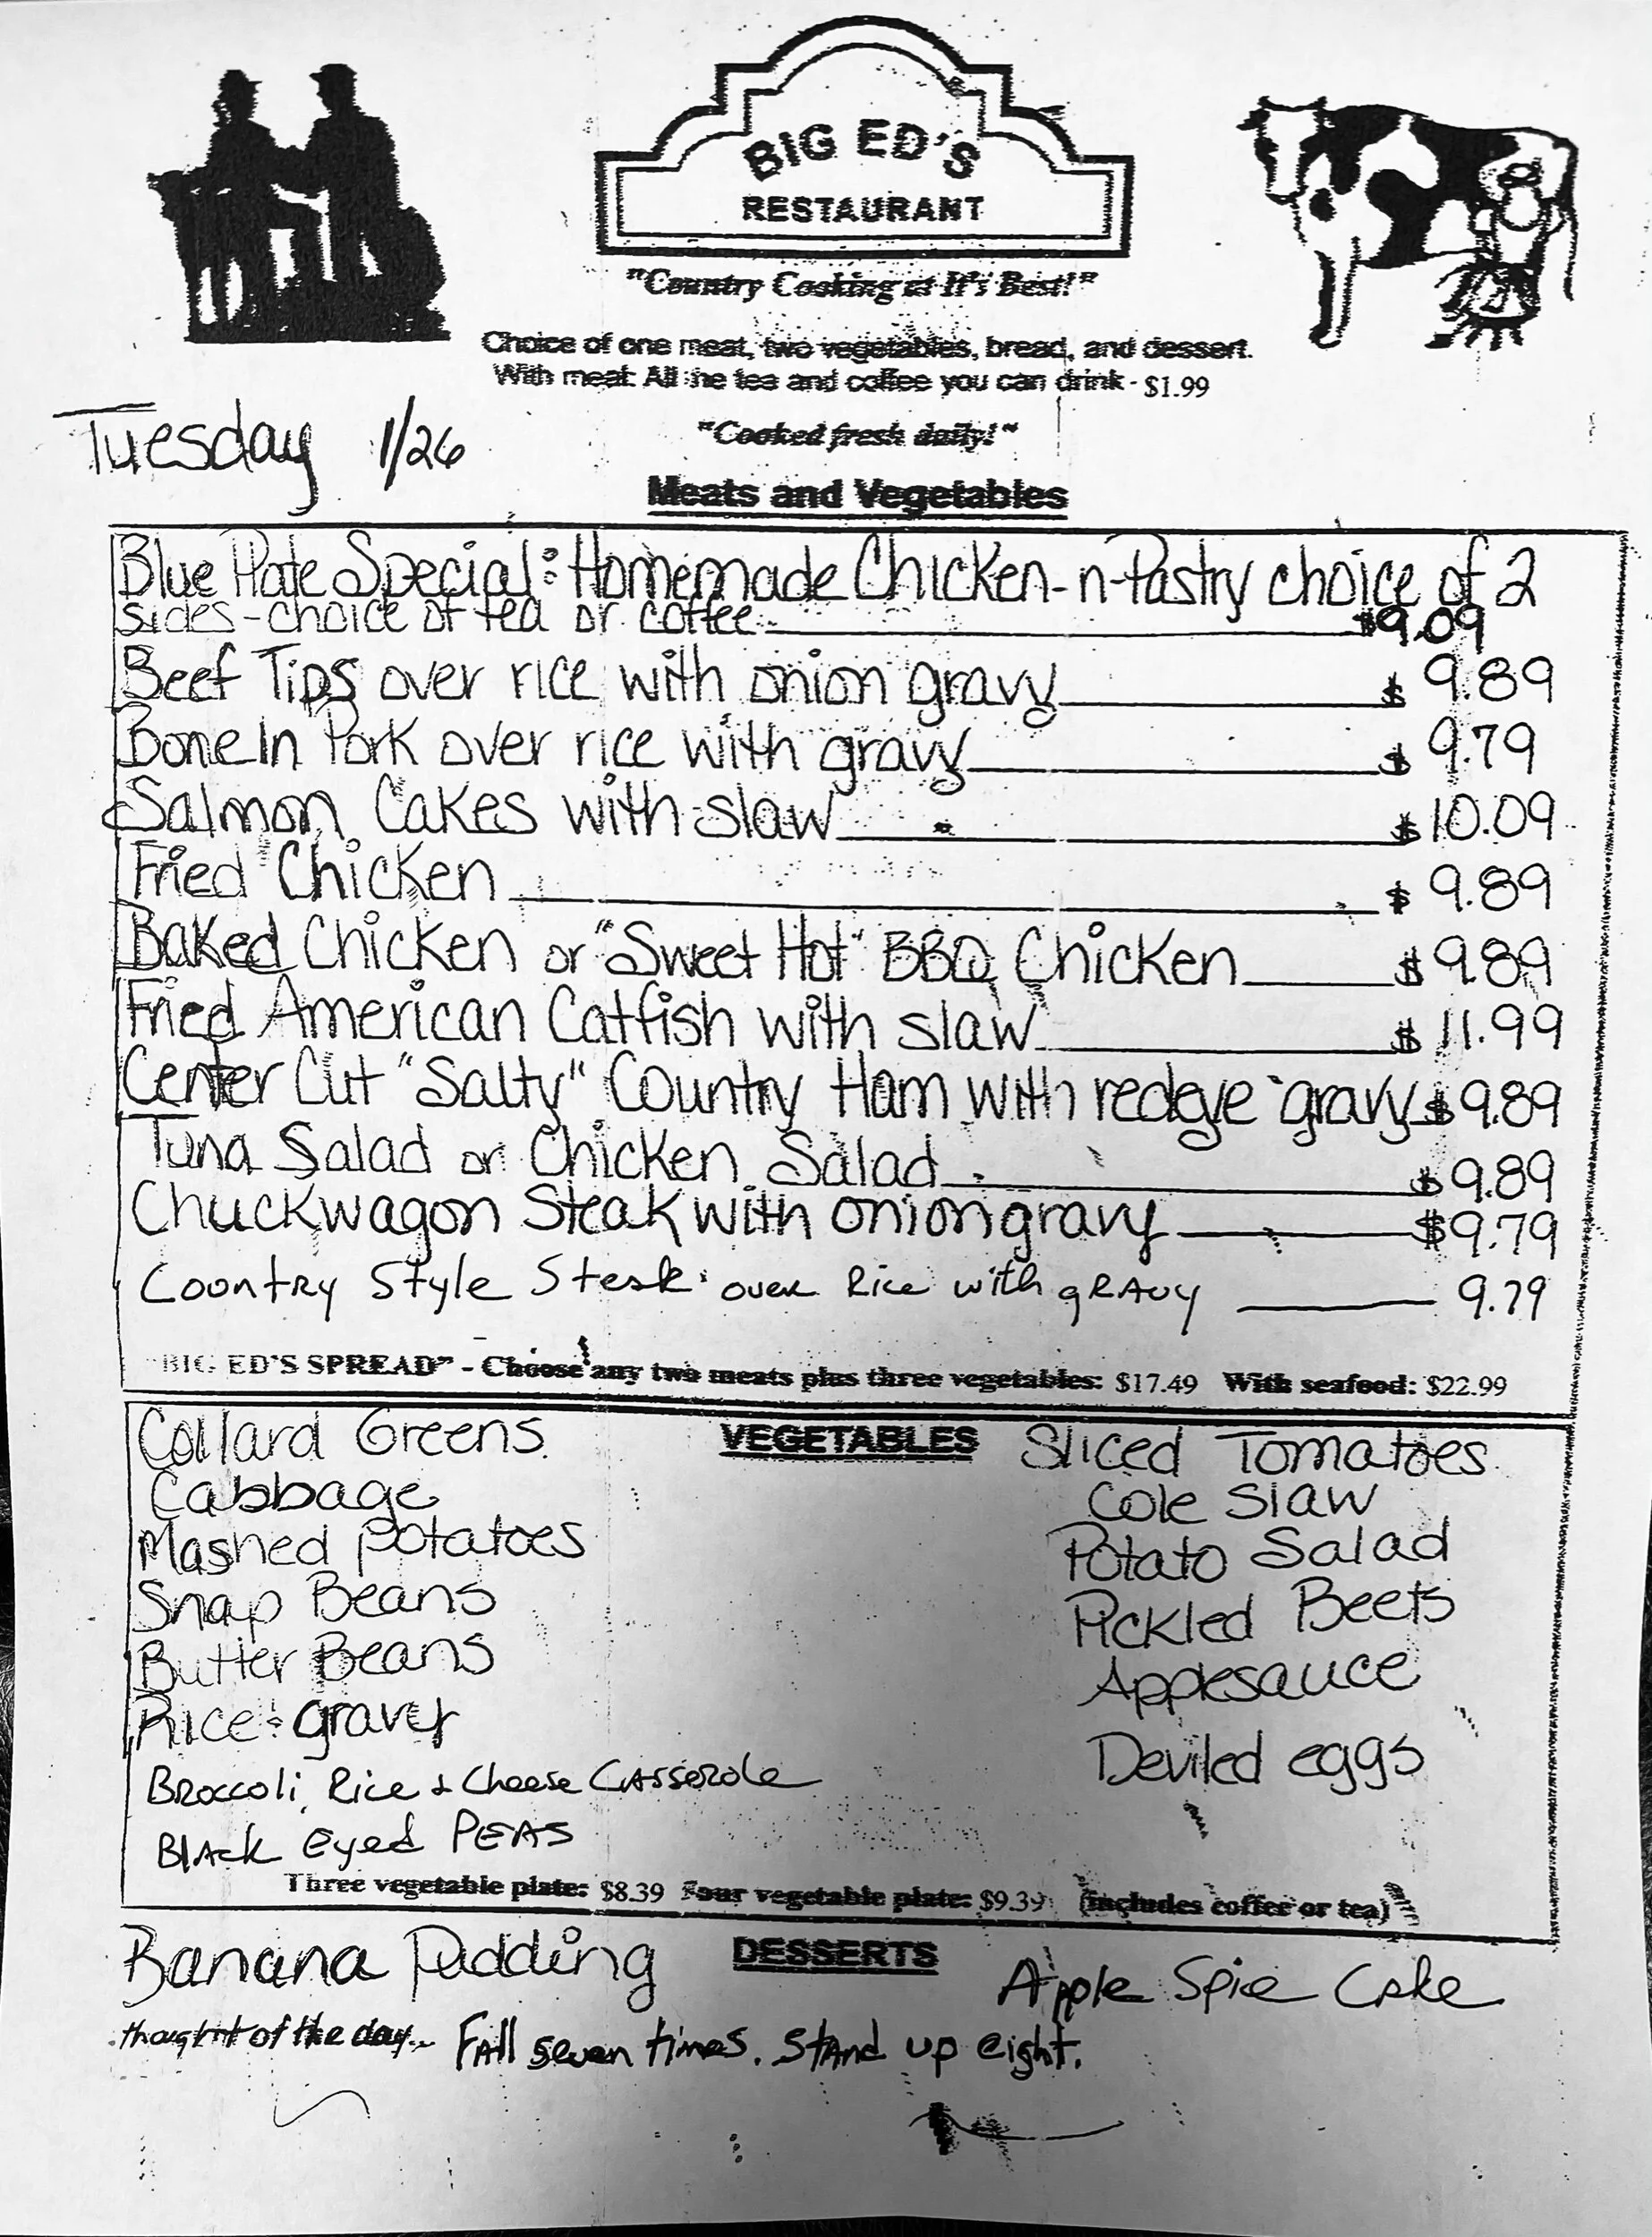 BIG ED'S
RESTAURANT
"Country Cooking at It's Best!"
Choice of one meat, two vegetables, bread, and dessert.
With meal: All the tea and coffee you can drink - $1.99
Tuesday 1/26
"Cooked fresh daily!"
Meats and Vegetables
Blue Plate Special: Homemade Chicken-n-Pastry choice of 2
sides - choice of tea or coffee $9.09
Beef Tips over rice with onion gravy $ 9.89
Bone In Pork over rice with gravy $ 9.79
Salmon Cakes with slaw $ 10.09
Fried Chicken $ 9.89
Baked Chicken or "Sweet Hot" BBQ Chicken $ 9.89
Fried American Catfish with slaw $ 11.99
Center Cut "Salty" Country Ham with redeye gravy $ 9.89
Tuna Salad or Chicken Salad $ 9.89
Chuckwagon Steak with onion gravy $9.79
Country Style Steak over Rice with gRAVY 9.79
"BIG ED'S SPREAD" - Choose any two meats plus three vegetables: $17.49 With seafood: $22.99
VEGETABLES
Collard Greens
Cabbage
Mashed potatoes
Snap Beans
Butter Beans
Rice & gravy
Broccoli, Rice & Cheese Casserole
Black Eyed PEAS
Sliced Tomatoes
Cole Slaw
Potato Salad
Pickled Beets
Applesauce
Deviled eggs
Three vegetable plate: $8.39 Four vegetable plate: $9.39 (includes coffee or tea)
DESSERTS
Banana Pudding
Apple Spice Cake
thought of the day... Fall seven times. Stand up eight.